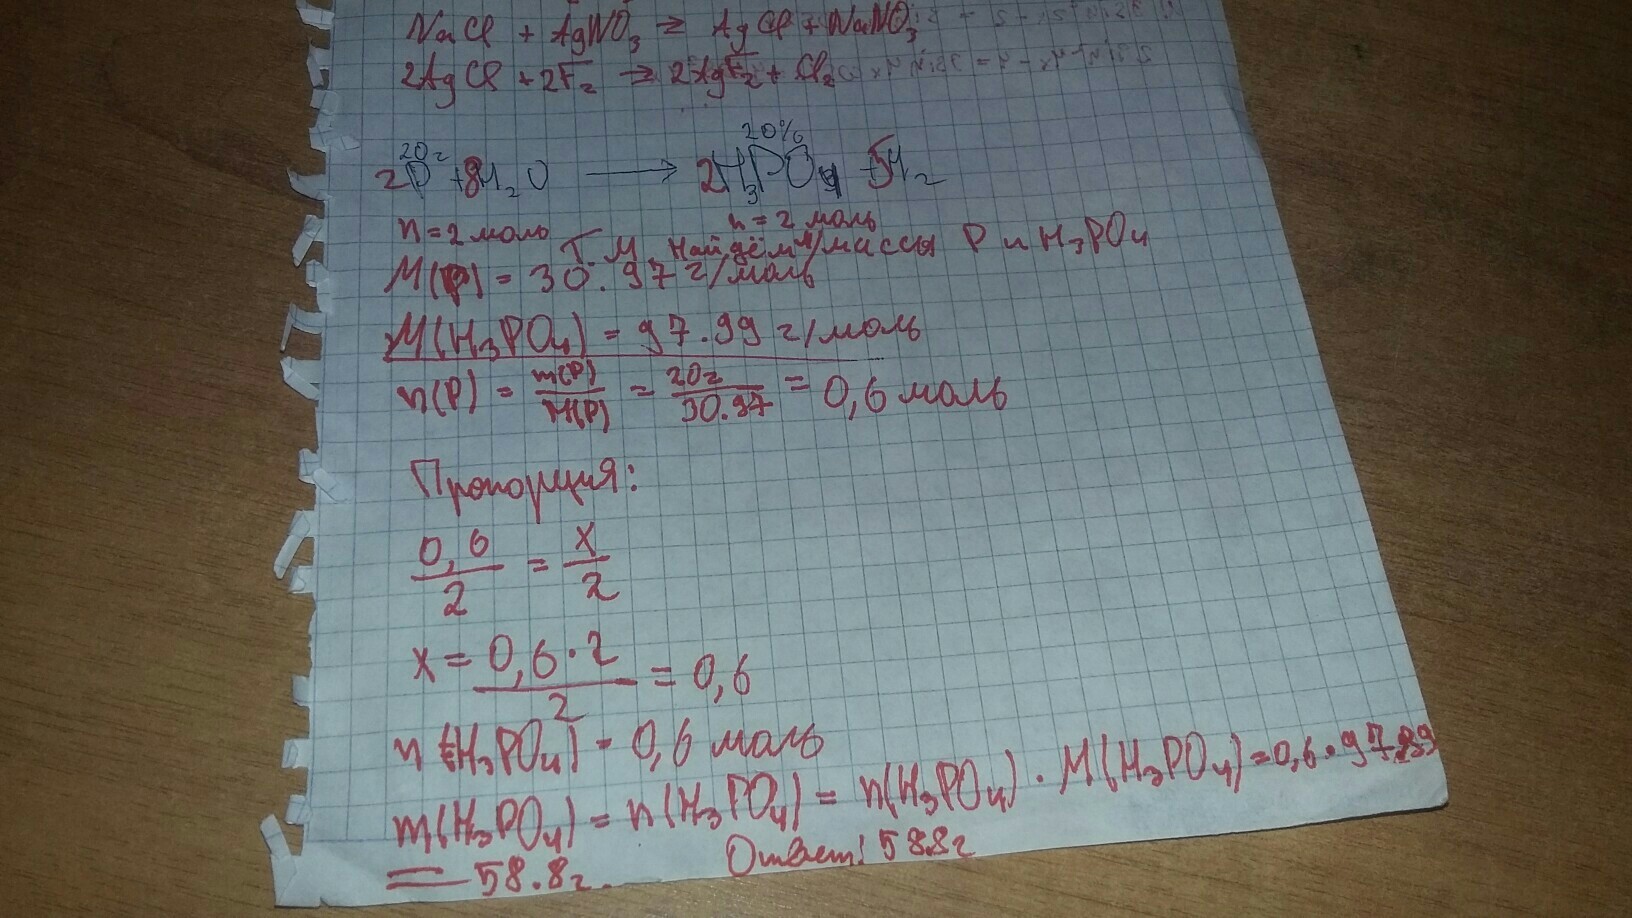 NaCl + AgNO3 = AgCl + NaNO3
2AgCl + 2F2 → 2AgF2 + Cl2
20г 20%
2P + 8H2O → 2H3PO4 + 5H2
n = 2 моль n = 2 моль
Т. М. Найдём м/массы P и H3PO4
M(P) = 30.97 г/моль
M(H3PO4) = 97.99 г/моль
n(P) = m(P)/M(P) = 20г/30.97 = 0,6 моль
Пропорция:
0,6/2 = x/2
x = 0,6·2/2 = 0,6
n(H3PO4) = 0,6 моль
m(H3PO4) = n(H3PO4) = n(H3PO4) · M(H3PO4) = 0,6·97.99
= 58.8г. Ответ: 58.8г